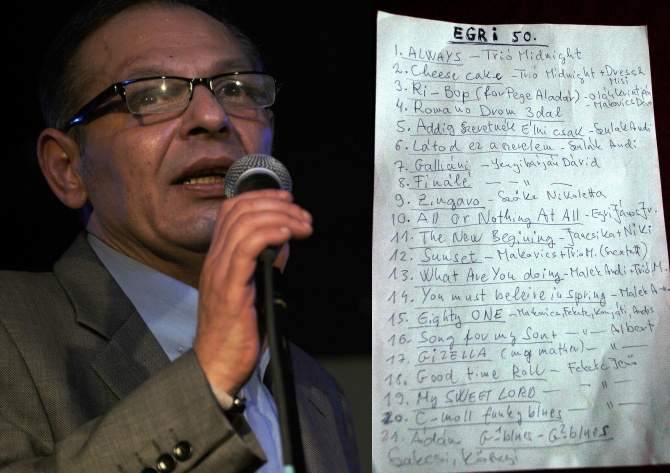 EGRI 50.
1. ALWAYS - Trió Midnight
2. Cheese cake - Trió Midnight + Dresch Misi
3. Ri-Bop (for Pege Aladar) -
Makovics Dénes
4. Romano Drom 3 dal
5. Addig szeretnék élni csak - Szulák Andi
6. Látod ez a szerelem - Szulák Andi
7. Galliáni - Yengibarjan Dávid
8. Finálé - " -
9. Zingaro - Szőke Nikoletta
10. All Or Nothing At All - Egri János Jr.
11. The New Begining - Jancsika + Niki
12. Sunset - Makovics + Trio M.
13. What Are You doing - Malek Andi - Trió M.
14. You must beleive in spring - Malek
15. Eighty ONE - Makovics, Fekete,
16. Song for my Son + - " - Albert
17. GIZELLA (my mother) - " -
18. Good time Roll - Fekete Jenő
19. My SWEET LORD - " -
20. C-moll funky blues - " -
21. Ádám G blues - G blues